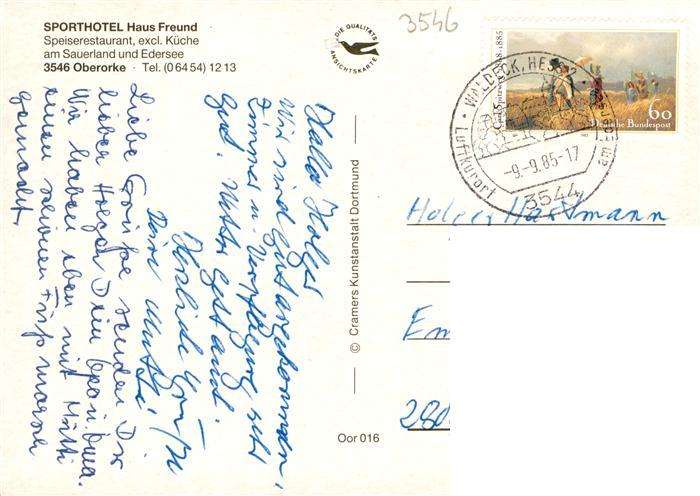 SPORTHOTEL Haus Freund
Speiserestaurant, excl. Küche
am Sauerland und Edersee
3546 Oberorke · Tel. (0 64 54) 12 13
DIE QUALITÄTS
ANSICHTSKARTE
3546
Carl Spitzweg 1808-1885
60
Deutsche Bundespost
WALDECK, HESS
-9.-9.85-17
Luftkurort
3544
Hallo Holger
Wir sind gut angekommen,
Zimmer u. Verpflegung sehr
gut. Wetter
Herzliche Grüße
Deine Mutti
Liebe Grüße senden Dir
lieber Holger Dein Opa u. Oma.
Wir haben eben mit Mutti
einen schönen Fußmarsch
gemacht
© Cramers Kunstanstalt Dortmund
Oor 016
Holger Hartmann
Em
280